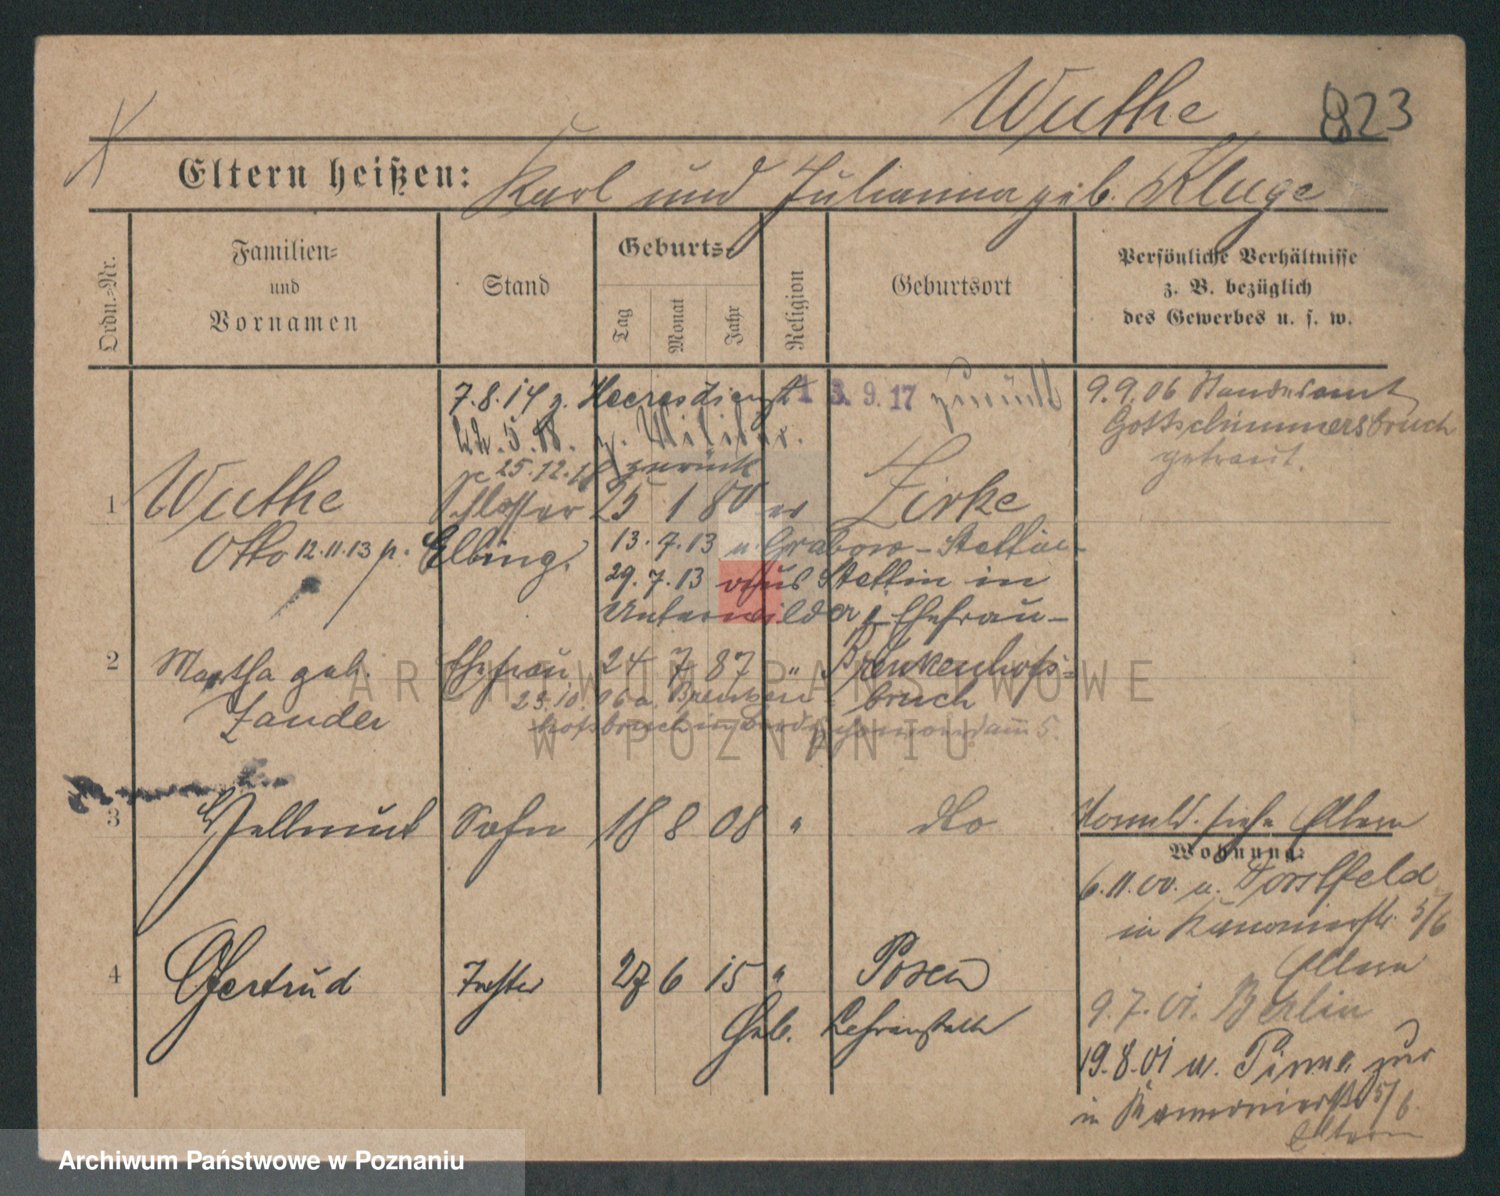 Wuthe 823
Eltern heißen: Karl und Julianna geb. Kluge
Ordn.-Nr.
Familien-
und
Vornamen
Stand
Geburts-
Tag
Monat
Jahr
Religion
Geburtsort
Persönliche Verhältnisse
z. B. bezüglich
des Gewerbes u. s. w.
7.8.14 z. Heeresdienst 13.9.17 zurück
5.18. z. Militär.
25.12.18 zurück
9.9.06 Standesamt
Gottschimmersbruch
getraut.
1 Wuthe Schlosser 25 1 80 ev Zirke
Otto 12.11.13 p. Elbing.
13.7.13 n. Grabow-Stettin
29.7.13 aus Stettin in
Unterwilda z. Ehefrau
2 Martha geb. Ehefrau 24 7 87 " Brenkenhofs-
Zander bruch
23.10.06 a. Brenken-
hofsbruch in
3 Hellmut Sohn 18 8 08 " dto
siehe Eltern
Wohnung:
6.11.00. a. Dorstfeld
in Kanonierstr. 5/6
Eltern
9.7.01. Berlin
4 Gertrud Tochter 27 6 15 " Posen
Geb. Lehranstalt
19.8.01 a. Pinne zur
in Kanonierstr 5/6.
Eltern
ARCHIWUM PAŃSTWOWE
W POZNANIU
Archiwum Państwowe w Poznaniu